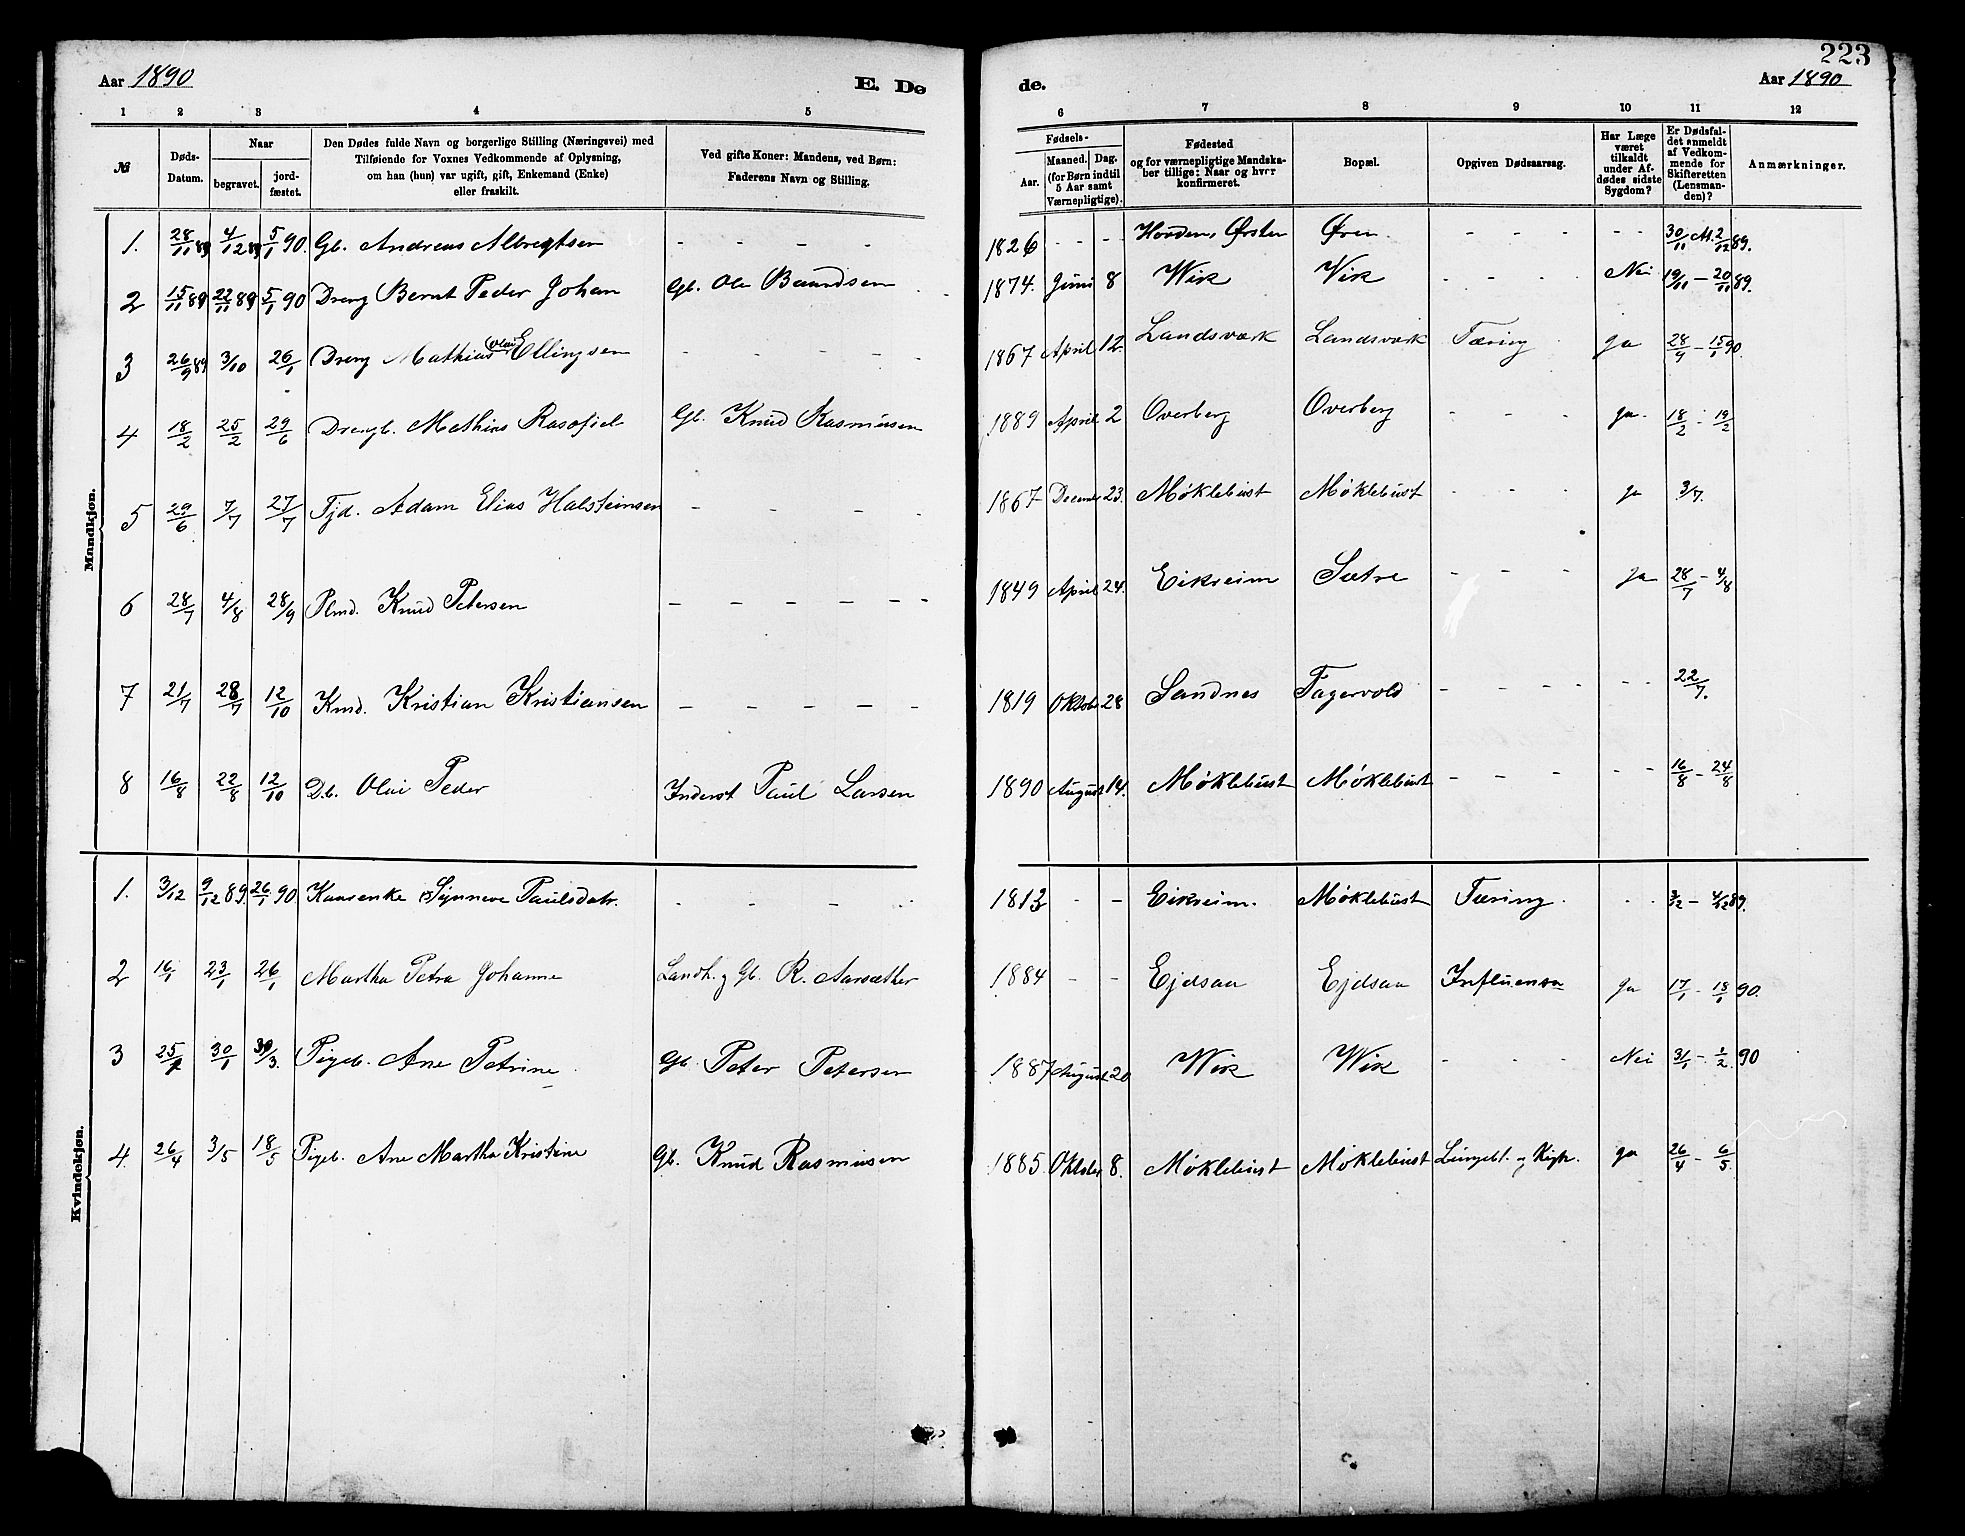 223
Aar 1890 E. Dø de. Aar 1890
1 2 3 4 5 6 7 8 9 10 11 12
№ Døds-Datum. Naar begravet. jord-fæstet. Den Dødes fulde Navn og borgerlige Stilling (Næringsvei) med Tilføiende for Voxnes Vedkommende af Oplysning, om han (hun) var ugift, gift, Enkemand (Enke) eller fraskilt. Ved gifte Koner: Mandens, ved Børn: Faderens Navn og Stilling. Fødsels- Aar. Maaned. Dag. (for Børn indtil 5 Aar samt Værnepligtige). Fødested og for værnepligtige Mandska-ber tillige: Naar og hvor konfirmeret. Bopæl. Opgiven Dødsaarsag. Har Læge været tilkaldt under Af-dødes sidste Sygdom? Er Dødsfal-det anmeldt af Vedkom-mende for Skifteretten (Lensman-den)? Anmærkninger.
Mandkjøn.
1. 28/11 89 4/12 89 5/1 90. Gb. Andreas Albregtsen - - - - 1826 - - - - Hovden, Ørsten Øren - - - - - - 30/11 At. 2/12 89.
2 15/11 89 22/11 89 5/1 90 Dreng Bernt Peder Johan Gb. Ole Baardsen 1874. Juni 8 Wik Vik - - - Nei 19/11 - 20/11 89.
3 26/9 89 3/10 26/1 Dreng Mathias Olai Ellingsen - - - - 1867 April 12 Landsværk Landsværk Tæring ja 28/9 - 15/1 90.
4 18/2 25/2 29/6 Drengb. Mathias Rasofiel Gb. Knud Rasmusen 1889 April 2 Overberg Overberg - - - ja 18/2 - 19/2
5 29/6 7/7 27/7 Tjd. Adam Elias Halsteinsen - - - - 1867 Decembr 23. Møklebust Møklebust - - - ja 3/7.
6 28/7 4/8 28/9 Plmd. Knud Petersen - - - - - - 1849 April 24. Eikreim Sætre - - - ja 28/7 - 4/8
7 21/7 28/7 12/10 Kmd. Kristian Kristiansen - - - - - 1819 Oktobr 28 Sandnes Fagervold - - - - - - 22/7.
8 16/8 22/8 12/10 Db. Olai Peder Inderst Paul Larsen 1890 August 14. Møklebust Møklebust - - - - - - 16/8 - 24/8
Kvindekjøn.
1. 3/12 9/12 89. 26/1 90 Kaarenke Synneve Paulsdatr. - - - - 1813 - - Eikreim. Møklebust Tæring. - - 3/12 - 4/12 89.
2 16/1 23/1 26/1 Martha Petra Johanne Landh. og Gb. R. Aarsæther 1884 - - Ejdsaa Ejdsaa Influensa ja 17/1 - 18/1 90.
3 25/1 30/1 30/3. Pigeb. Ane Petrine Gb. Peter Petersen 1887 August 20 Wik Wik - - - Nei 31/1 - 1/2 90
4. 26/4 3/5 18/5 Pigeb. Ane Martha Kristine Gb. Knud Rasmusen 1885. Oktober 8. Møklebust Møklebust Lungebt. og Kigh. ja 26/4 - 6/5.